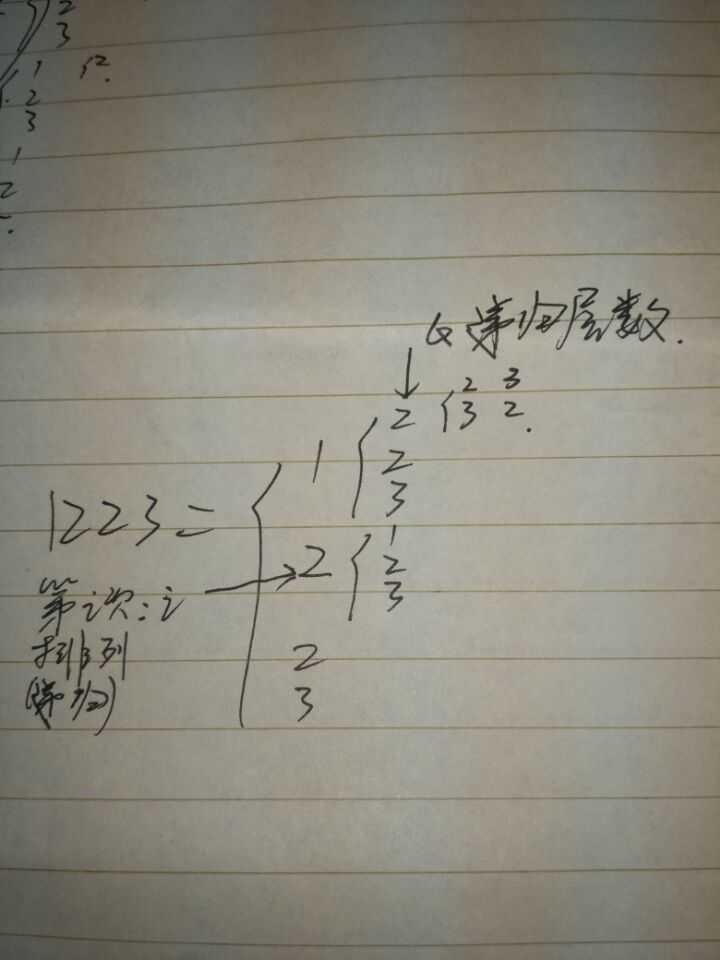 2
3
1 2.
2
3
1
2
G 第归层数.
2 3
2 3 2.
1 2
3
1223 =
1
2 2
3
第i次: i
排列
(第归)
2
3